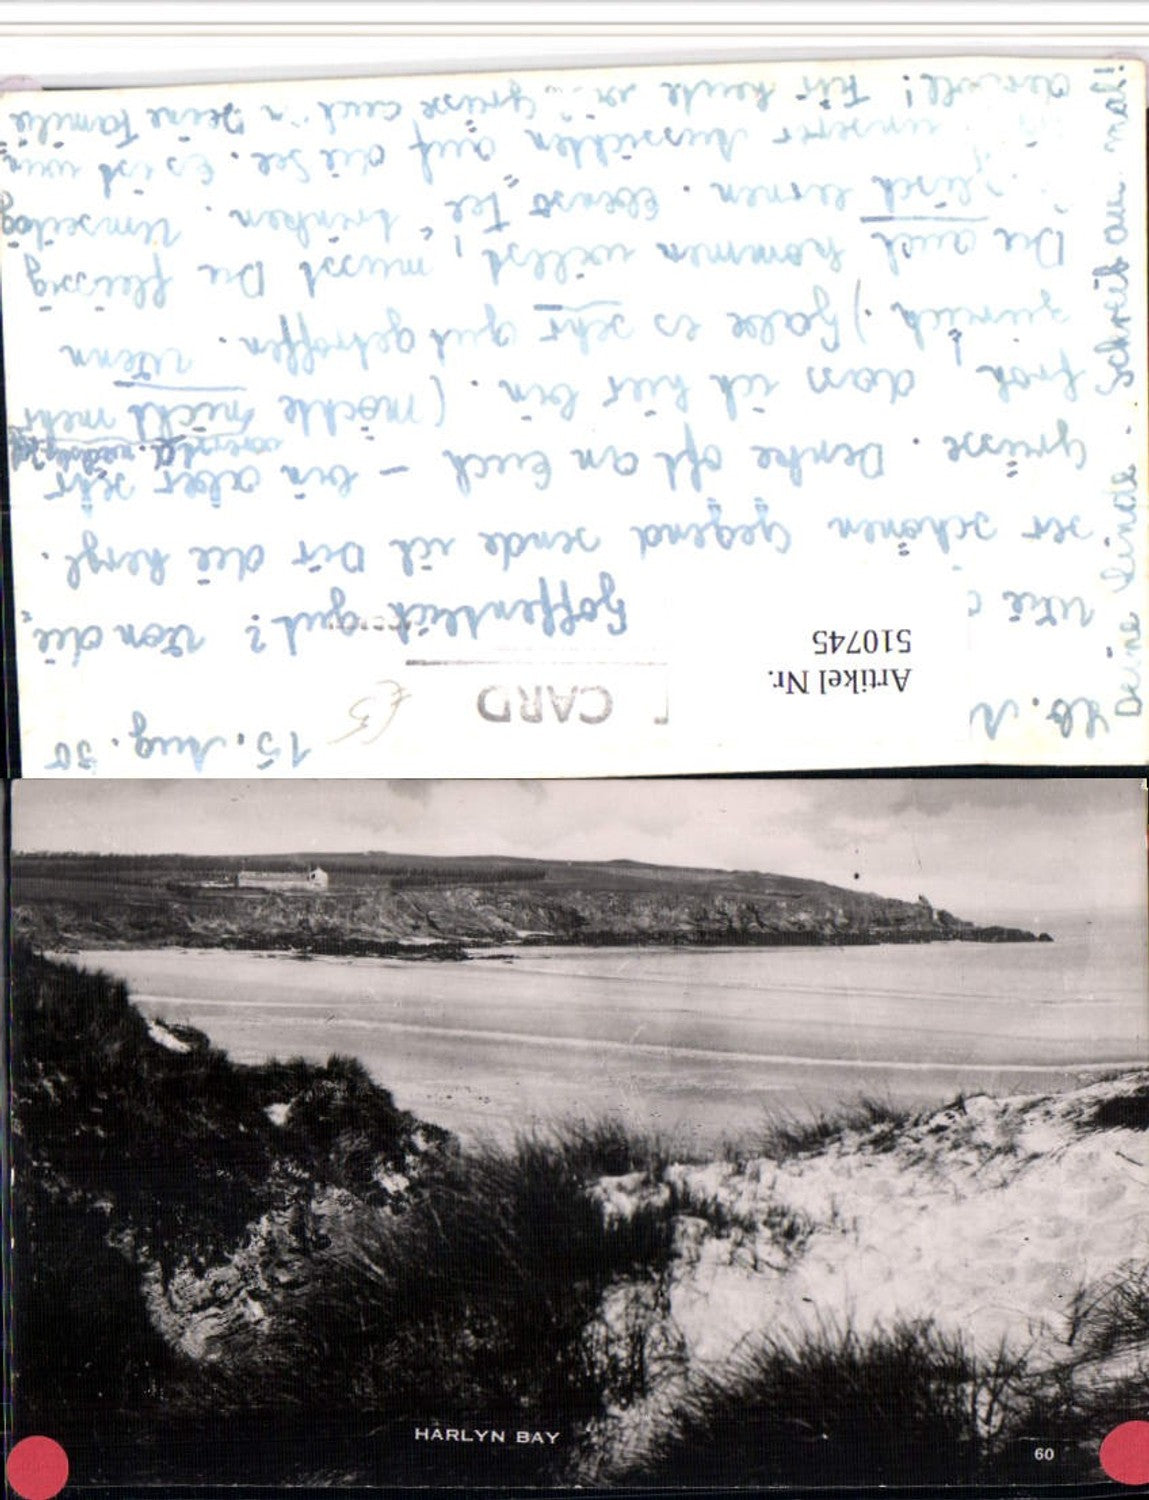 15. Aug. 50
CARD
£5
Artikel Nr.
510745
Lb.
Wie
Hoffentlich gut? Von die
ser schönen Gegend sende ich Dir die herzl.
Grüsse. Denke oft an Euch – bin aber sehr
froh, dass ich hier bin. (möchte nicht mehr
zurück.) Habe es sehr gut getroffen. Wenn
Du auch kommen willst, musst Du fleissig
lernen. Ebenso Tee trinken.
unserer auf die See. Es ist wun
dervoll! Für heute Grüsse auch an Deine Familie
Deine Linde. Schreib mal!
HARLYN BAY
60